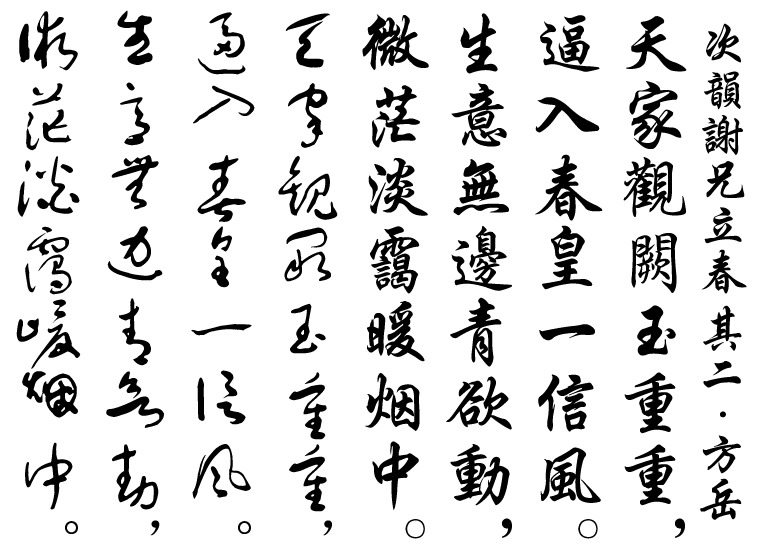 次韻謝兄立春其二·方岳
天家觀闕玉重重，
逼入春皇一信風。
生意無邊青欲動，
微茫淡靄暖烟中。
天家觀闕玉重重，
逼入春皇一信風。
生意無邊青欲動，
微茫淡靄暖烟中。